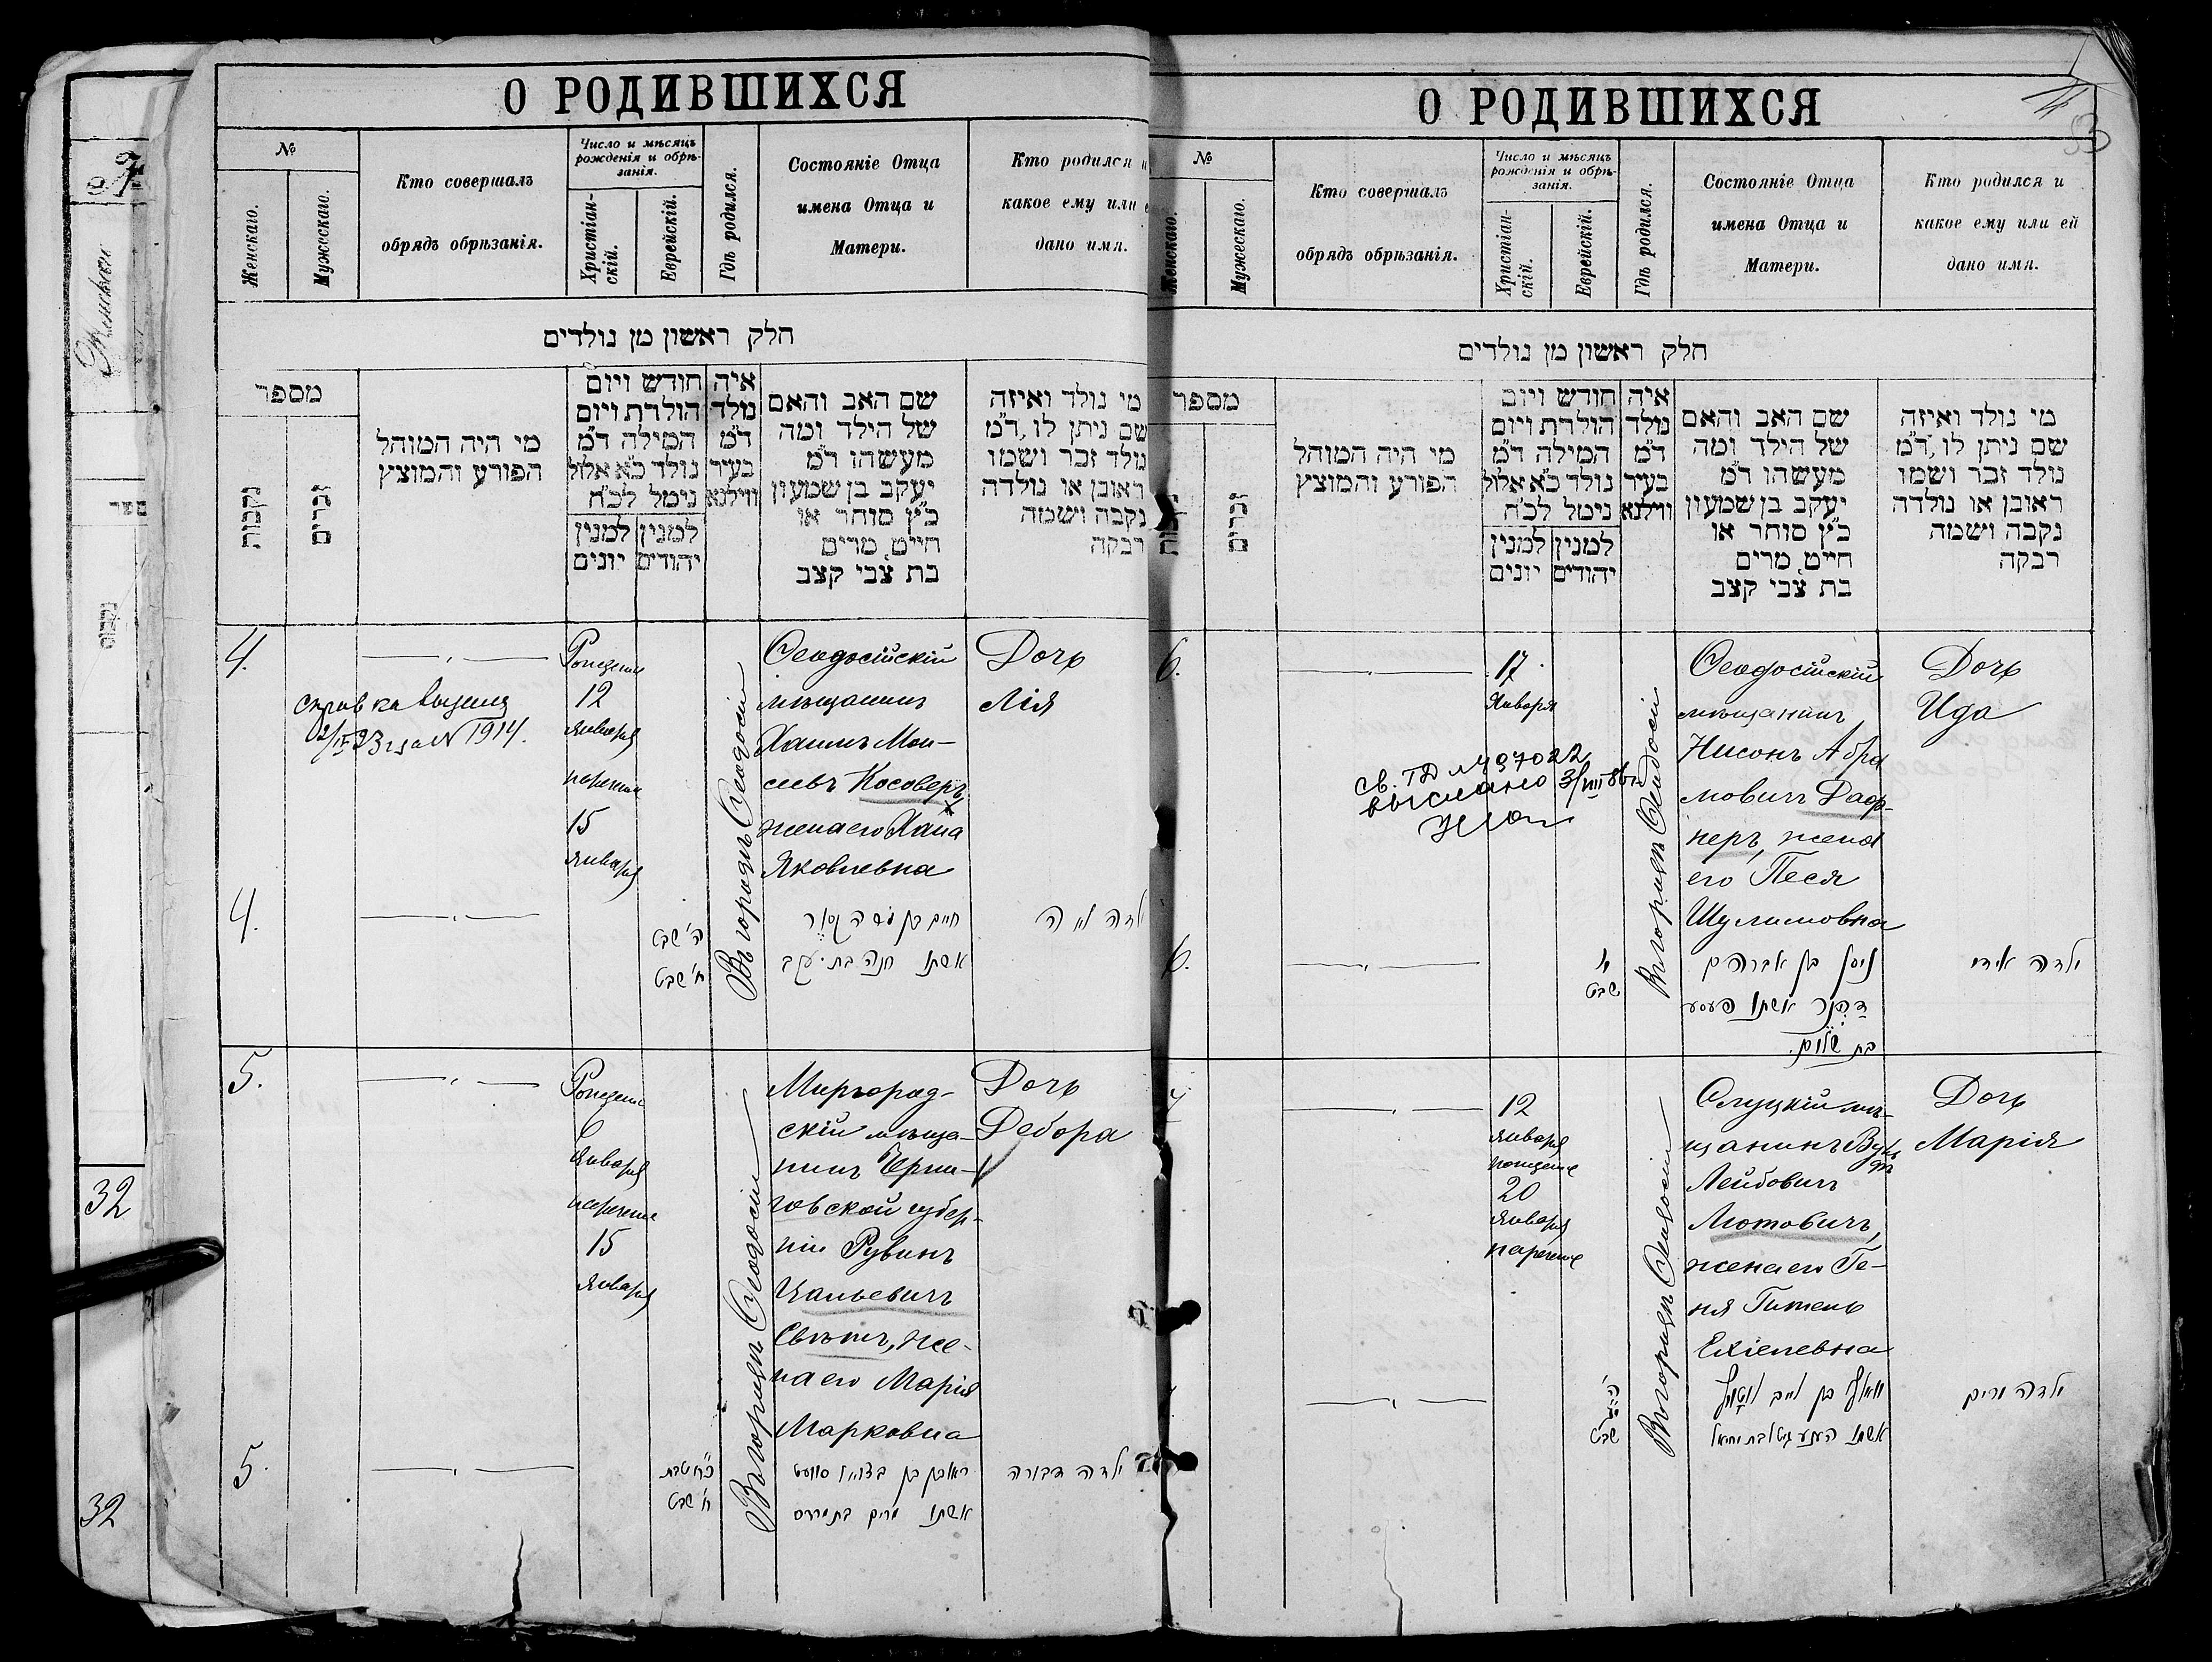 О РОДИВШИХСЯ
№
Женскаго.
Мужескаго.
Кто совершалъ
обрядъ обрѣзанія.
Число и мѣсяцъ
рожденія и обрѣ-
занія.
Христіан-
скій.
Еврейскій.
Гдѣ родился.
Состояніе Отца
имена Отца и
Матери.
Кто родился и
какое ему или
дано имя.
חלק ראשון מן נולדים
מספר
נקבות
זכרים
מי היה המוהל
הפורע והמוצץ
חודש ויום
הולדת ויום
המילה ד״מ
נולד כ״א אלול
נימל לכ״ח
למנין
יונים
למנין
יהודים
איה
נולד
ד״מ
בעיר
ווילנא
שם האב והאם
של הילד ומה
מעשהו ד״מ
יעקב בן שמעון
כ״ץ סוחר או
חייט, מרים
בת צבי קצב
מי נולד ואיזה
שם ניתן לו, ד״מ
נולד זכר ושמו
ראובן או נולדה
נקבה ושמה
רבקה
4.
Рожденіе
12
января
нареченіе
15
января
Въ городѣ Ѳеодосіи
Ѳеодосійскій
мѣщанинъ
Хаимъ Мои-
сеевъ Косоверъ
жена его Хана
Яковлевна
Дочь
Лія
справка выдана
1914.
4.
ה' שבט
ח' שבט
חיים בן משה
אשתו חנה בת יעקב
ילדה לאה
5.
Рожденіе
6
января
нареченіе
15
января
Въ городѣ Ѳеодосіи
Миргород-
скій мѣща-
нинъ Черни-
говской губер-
ніи Рувинъ
Цальевичъ
Свѣтъ, же-
на его Марія
Марковна
Дочь
Дебора
5.
כ״ח טבת
ח' שבט
ראובן בן בצלאל סוועט
אשתו מרים בת מרדכי
ילדה דבורה
О РОДИВШИХСЯ
№
Женскаго.
Мужескаго.
Кто совершалъ
обрядъ обрѣзанія.
Число и мѣсяцъ
рожденія и обрѣ-
занія.
Христіан-
скій.
Еврейскій.
Гдѣ родился.
Состояніе Отца
имена Отца и
Матери.
Кто родился и
какое ему или ей
дано имя.
חלק ראשון מן נולדים
מספר
זכרים
מי היה המוהל
הפורע והמוצץ
חודש ויום
הולדת ויום
המילה ד״מ
נולד כ״א אלול
נימל לכ״ח
למנין
יונים
למנין
יהודים
איה
נולד
ד״מ
בעיר
ווילנא
שם האב והאם
של הילד ומה
מעשהו ד״מ
יעקב בן שמעון
כ״ץ סוחר או
חייט, מרים
בת צבי קצב
מי נולד ואיזה
שם ניתן לו, ד״מ
נולד זכר ושמו
ראובן או נולדה
נקבה ושמה
רבקה
6.
17
Января
Въ городѣ Ѳеодосіи
Ѳеодосійскій
мѣщанинъ
Нисонъ Абра
мовичъ Даф-
неръ, жена
его Песя
Шулимовна
Дочь
Ида
св. ТД № 497022
выслано
6.
י'
שבט
ניסן בן אברהם
דפנר אשתו פעסע
בת שלום.
ילדה אידי
7
12
января
рожденіе
20
января
нареченіе
Въ городѣ Ѳеодосіи
Слуцкій мѣ-
щанинъ Вульфъ
Лейбовичъ
Лютовичъ,
жена его Ге-
ня Гитель
Ехіелевна
Дочь
Марія
שבט
וואלף בן לייב
אשתו העניע גיטל בת יחיאל
ילדה מרים
32
32